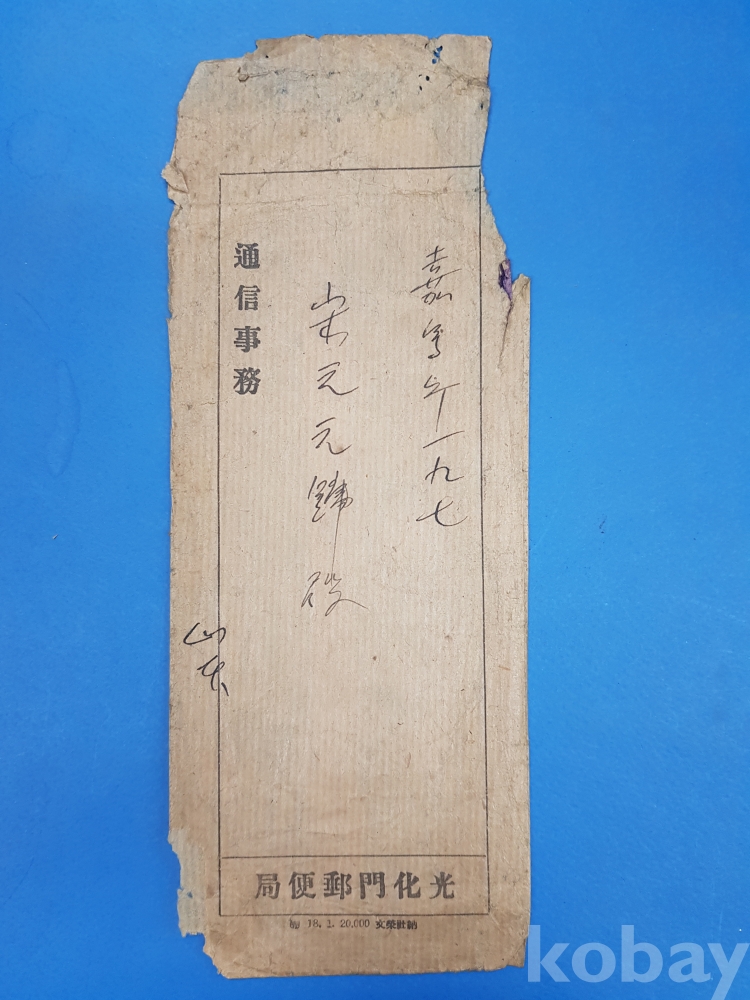 嘉寫町一九七
崇元元號殿
通信事務
山本
光化門郵便局
納社榮文 18. 1. 20,000
kobay